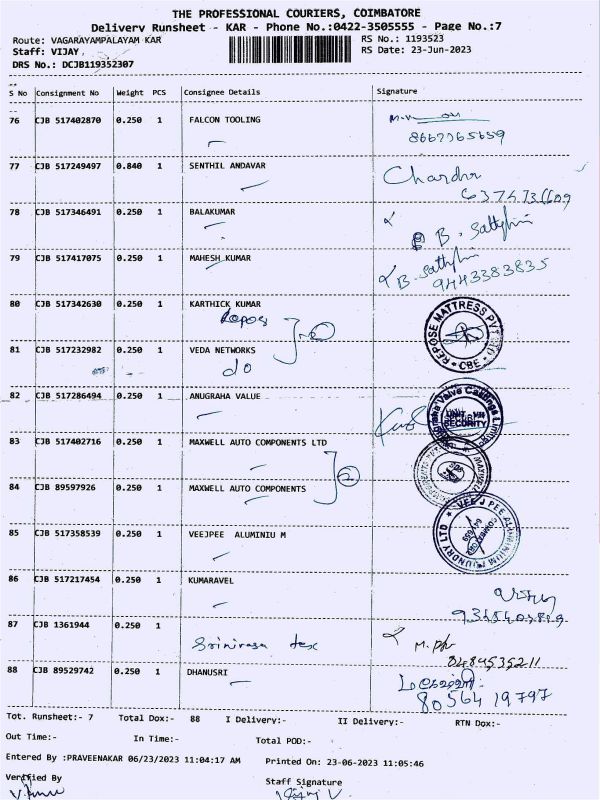 THE PROFESSIONAL COURIERS, COIMBATORE
Delivery Runsheet - KAR - Phone No.:0422-3505555 - Page No.:7
Route: VAGARAYAMPALAYAM KAR
RS No.: 1193523
Staff: VIJAY
RS Date: 23-Jun-2023
DRS No.: DCJB119352307
S No Consignment No Weight PCS Consignee Details Signature
76 CJB 517402870 0.250 1 FALCON TOOLING
77 CJB 517249497 0.840 1 SENTHIL ANDAVAR
78 CJB 517346491 0.250 1 BALAKUMAR
B. Sathy
79 CJB 517417075 0.250 1 MAHESH KUMAR
B. Sathy
9443383835
80 CJB 517342630 0.250 1 KARTHICK KUMAR
Repos
REPOSE MATTRESS PVT LTD
CBE
81 CJB 517232982 0.250 1 VEDA NETWORKS
do
82 CJB 517286494 0.250 1 ANUGRAHA VALUE
Anugraha Valve Castings Limited
SECURITY
83 CJB 517402716 0.250 1 MAXWELL AUTO COMPONENTS LTD
2
84 CJB 89597926 0.250 1 MAXWELL AUTO COMPONENTS
85 CJB 517358539 0.250 1 VEEJPEE ALUMINIU M
VEE J PEE ALUMINIUM FOUNDRY LTD
86 CJB 517217454 0.250 1 KUMARAVEL
87 CJB 1361944 0.250 1
Srinivasa tex
88 CJB 89529742 0.250 1 DHANUSRI
80564 19797
Tot. Runsheet:- 7 Total Dox:- 88 I Delivery:- II Delivery:- RTN Dox:-
Out Time:- In Time:- Total POD:-
Entered By :PRAVEENAKAR 06/23/2023 11:04:17 AM Printed On: 23-06-2023 11:05:46
Verified By Staff Signature